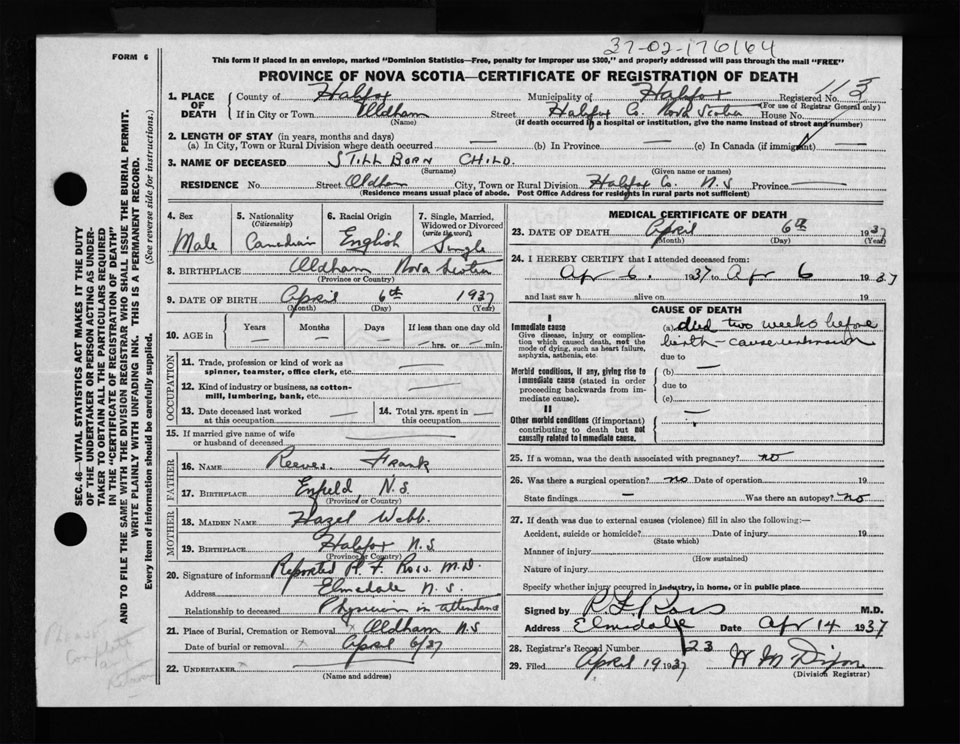 37-02-176164
FORM 6
This form if placed in an envelope, marked "Dominion Statistics—Free, penalty for improper use $300," and properly addressed will pass through the mail "FREE"
PROVINCE OF NOVA SCOTIA—CERTIFICATE OF REGISTRATION OF DEATH
1. PLACE OF DEATH
County of Halifax Municipality of Halifax Registered No.
(For use of Registrar General only)
If in City or Town Oldham Street Halifax Co. Nova Scotia House No.
(Name) (If death occurred in a hospital or institution, give the name instead of street and number)
2. LENGTH OF STAY (in years, months and days)
(a) In City, Town or Rural Division where death occurred — (b) In Province — (c) In Canada (if immigrant) —
3. NAME OF DECEASED STILL BORN CHILD.
(Surname) (Given name or names)
RESIDENCE No. Street Oldham City, Town or Rural Division Halifax Co. N.S Province —
(Residence means usual place of abode. Post Office Address for residents in rural parts not sufficient)
4. Sex 5. Nationality (Citizenship) 6. Racial Origin 7. Single, Married, Widowed or Divorced (write the word)
Male Canadian English Single
8. BIRTHPLACE Oldham Nova Scotia
(Province or Country)
9. DATE OF BIRTH April 6th 1937
(Month) (Day) (Year)
10. AGE in Years Months Days If less than one day old
— — — — hrs. or — min.
OCCUPATION
11. Trade, profession or kind of work as spinner, teamster, office clerk, etc. —
12. Kind of industry or business, as cotton-mill, lumbering, bank, etc. —
13. Date deceased last worked at this occupation — 14. Total yrs. spent in this occupation —
15. If married give name of wife or husband of deceased —
FATHER
16. NAME Reeves. Frank
17. BIRTHPLACE Enfield, N.S.
(Province or Country)
MOTHER
18. MAIDEN NAME Hazel Webb.
19. BIRTHPLACE Halifax N.S
(Province or Country)
20. Signature of informant Reported R. F. Ross M.D.
Address Elmsdale N.S.
Relationship to deceased Physician in attendance
21. Place of Burial, Cremation or Removal x Oldham N.S
Date of burial or removal x April 6/37
22. UNDERTAKER x —
(Name and address)
MEDICAL CERTIFICATE OF DEATH
23. DATE OF DEATH April 6th 1937
(Month) (Day) (Year)
24. I HEREBY CERTIFY that I attended deceased from:
Apr 6. 1937 to Apr 6 1937
and last saw h alive on 19
CAUSE OF DEATH
I
Immediate cause
Give disease, injury or complication which caused death, not the mode of dying, such as heart failure, asphyxia, asthenia, etc.
(a) died two weeks before
birth - cause unknown
due to
Morbid conditions, if any, giving rise to immediate cause (stated in order proceeding backwards from immediate cause).
(b) —
due to
(c)
II
Other morbid conditions (if important) contributing to death but not causally related to immediate cause.
—
25. If a woman, was the death associated with pregnancy? no
26. Was there a surgical operation? no Date of operation 19
State findings — Was there an autopsy? no
27. If death was due to external causes (violence) fill in also the following:—
Accident, suicide or homicide? Date of injury 19
(State which)
Manner of injury
(How sustained)
Nature of injury
Specify whether injury occurred in industry, in home, or in public place
Signed by M.D.
Address Elmsdale Date Apr 14 1937
28. Registrar's Record Number 23
29. Filed April 19 1937 W M Dixon
(Division Registrar)
SEC. 46—VITAL STATISTICS ACT MAKES IT THE DUTY
OF THE UNDERTAKER OR PERSON ACTING AS UNDERTAKER
TO OBTAIN ALL THE PARTICULARS REQUIRED
IN THE "CERTIFICATE OF REGISTRATION OF DEATH"
AND TO FILE THE SAME WITH THE DIVISION REGISTRAR WHO SHALL ISSUE THE BURIAL PERMIT.
WRITE PLAINLY WITH UNFADING INK. THIS IS A PERMANENT RECORD.
Every item of information should be carefully supplied. (See reverse side for instructions.)
Please
Complete
and
Return